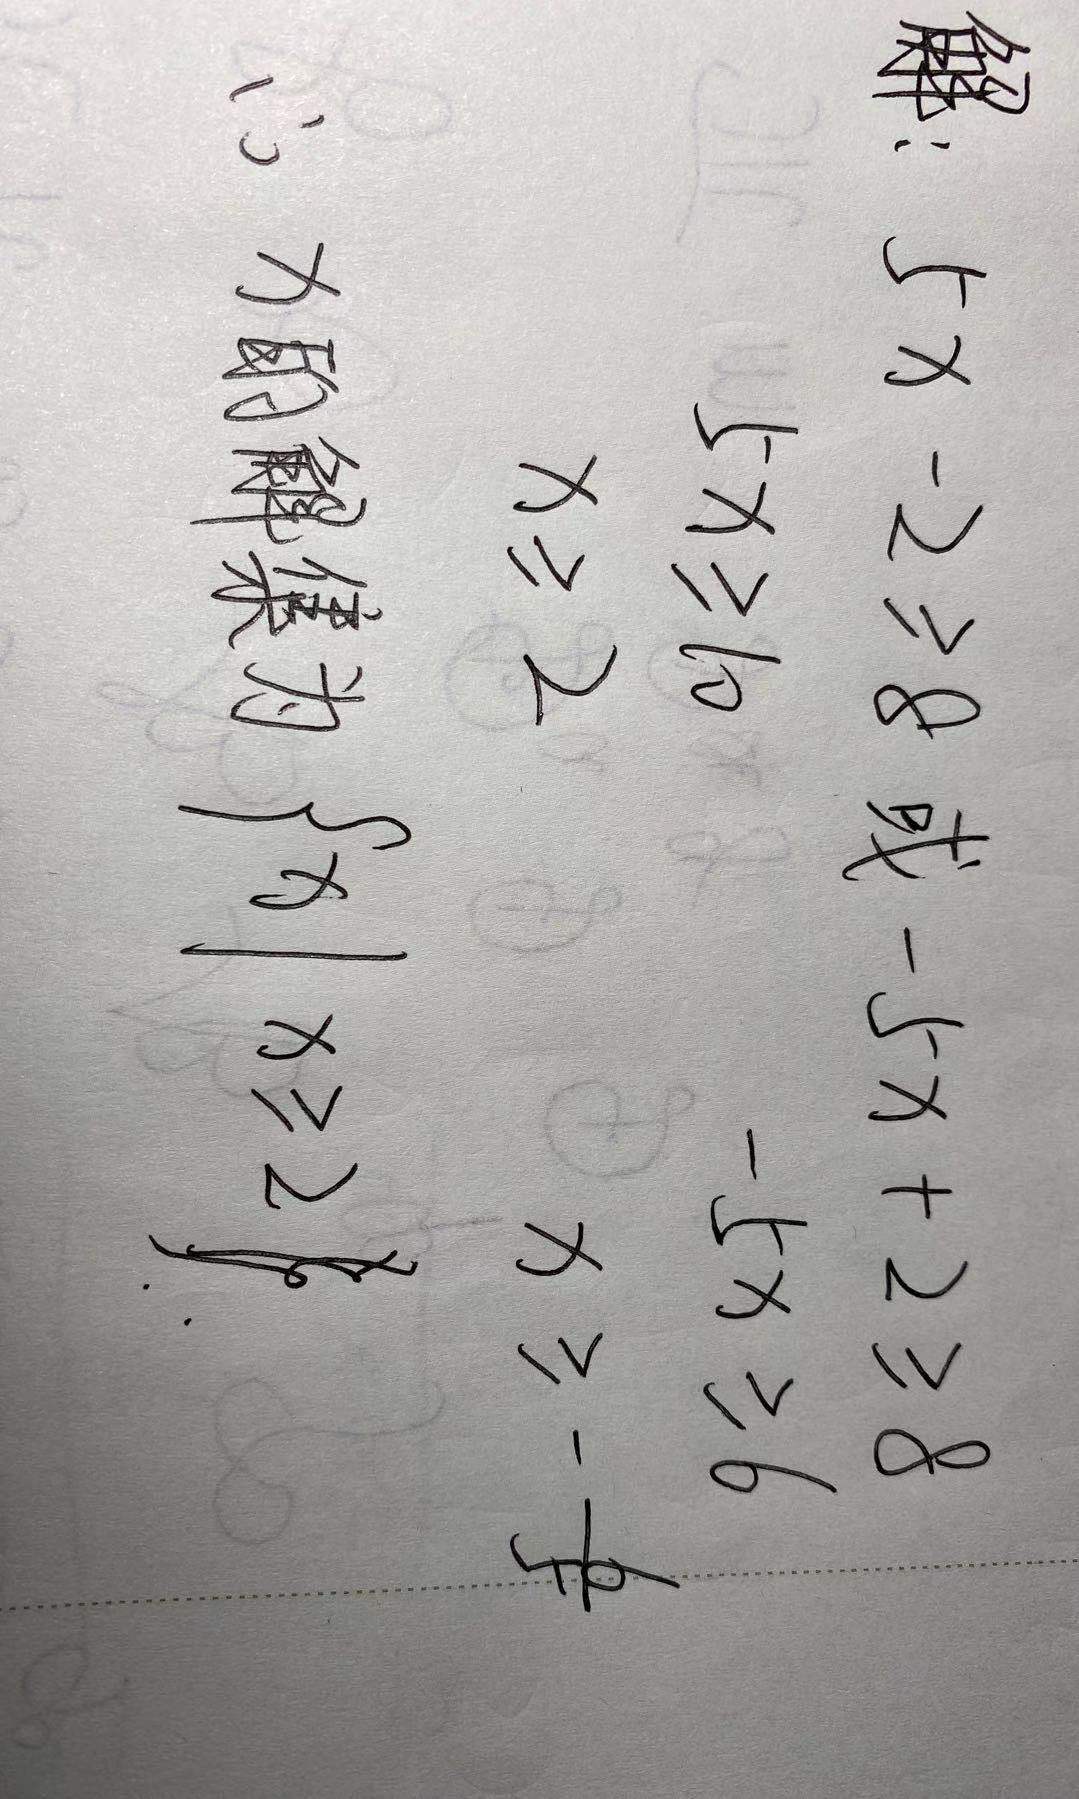 解: 5x-2≥8 或 -5x+2≥8
5x≥10 -5x≥6
x≥2 x≥-6/5
∴ x的解集为{x|x≥2}.